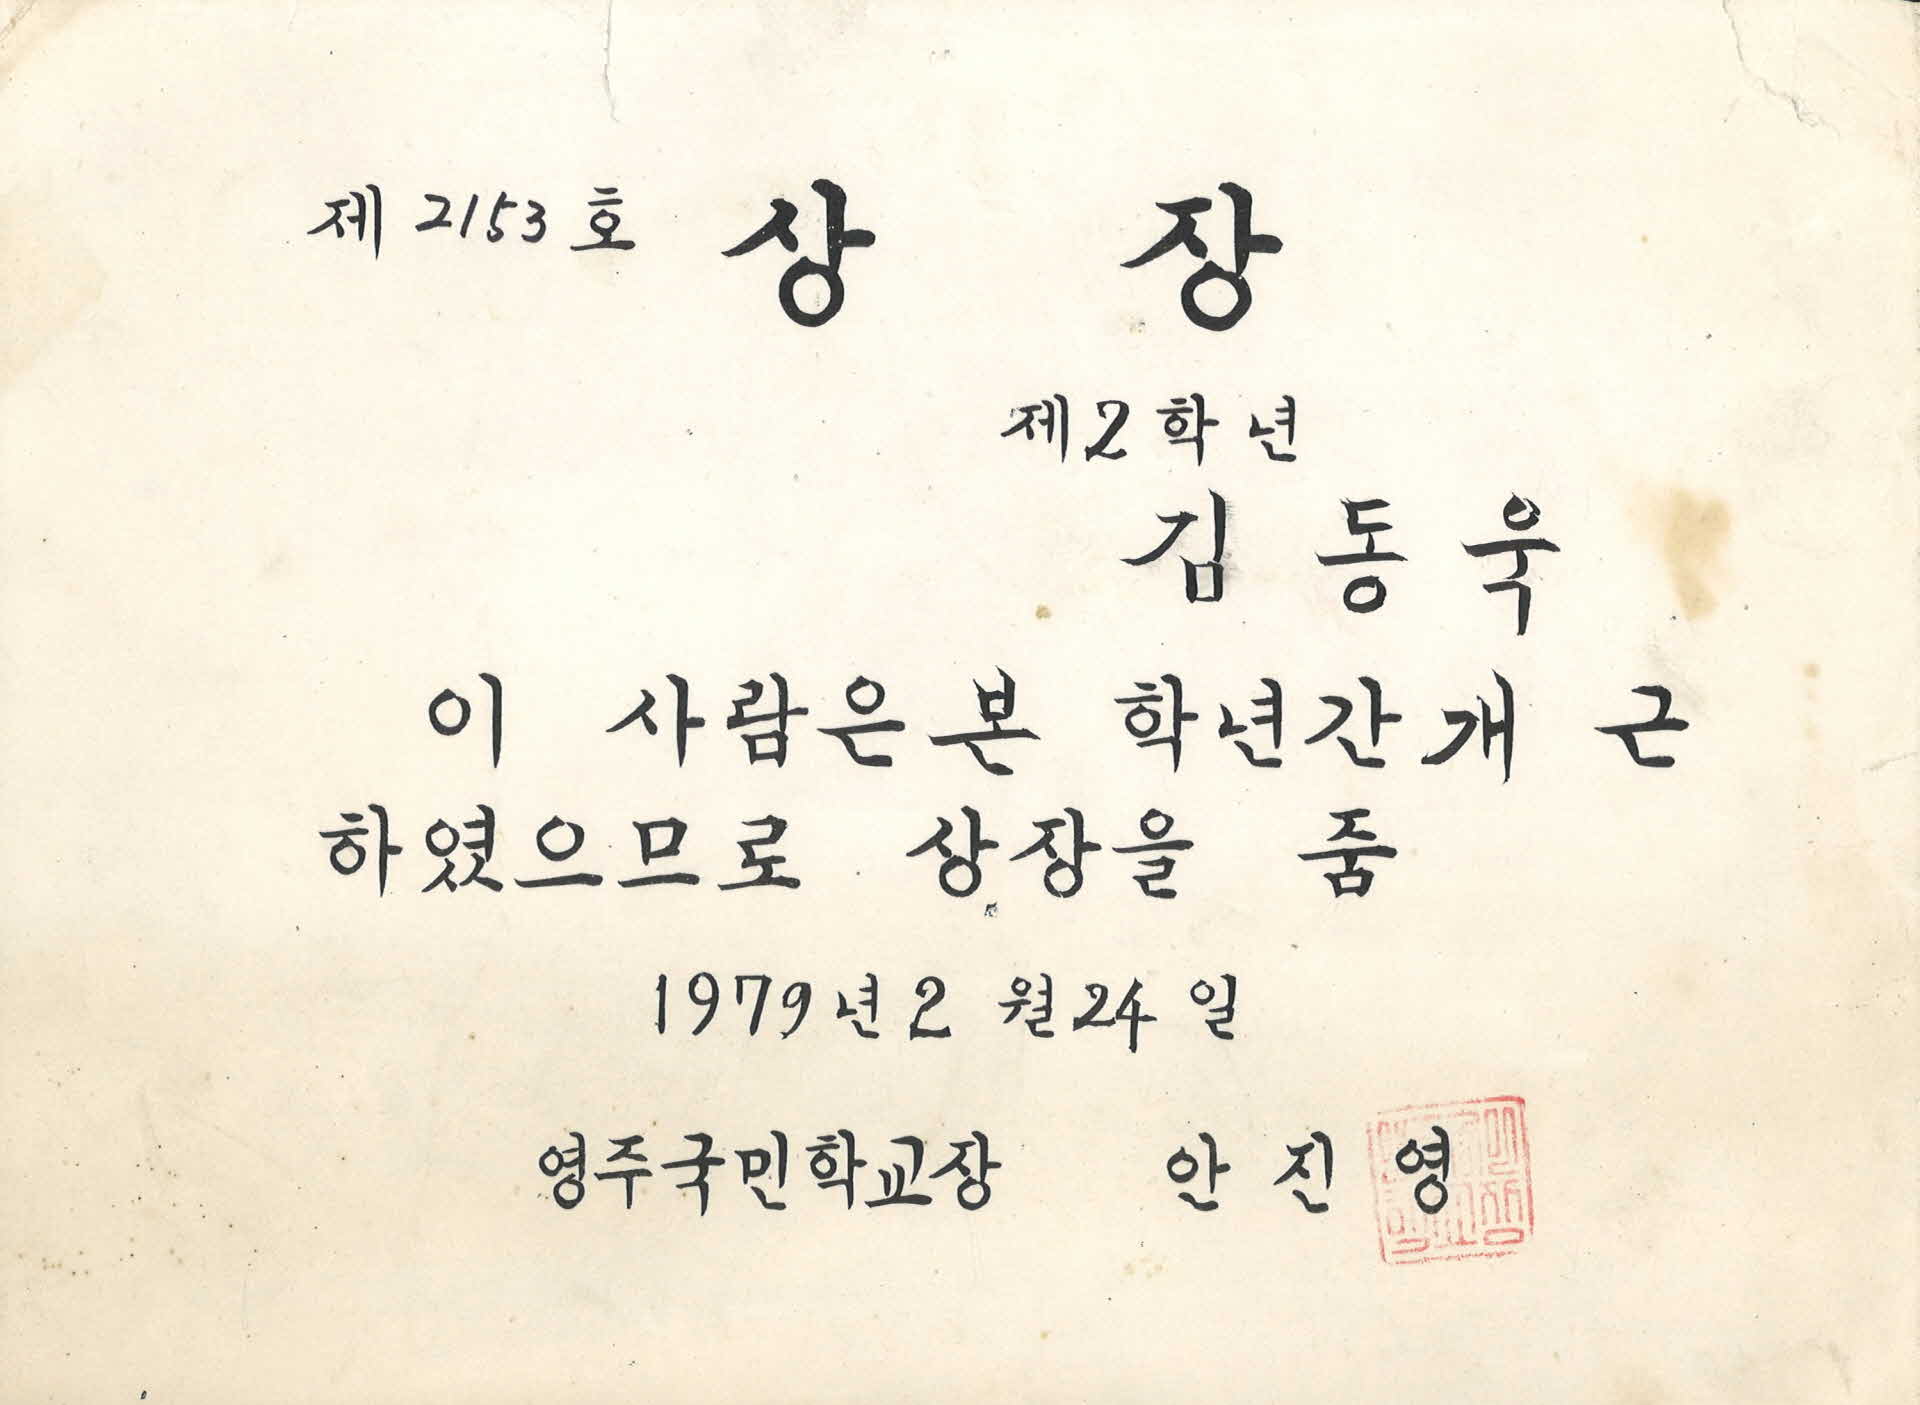 제 2153 호 상 장
제2학년
김 동 욱
이 사람은 본 학년간 개 근
하였으므로 상장을 줌
1979년 2 월 24 일
영주국민학교장 안 진 영